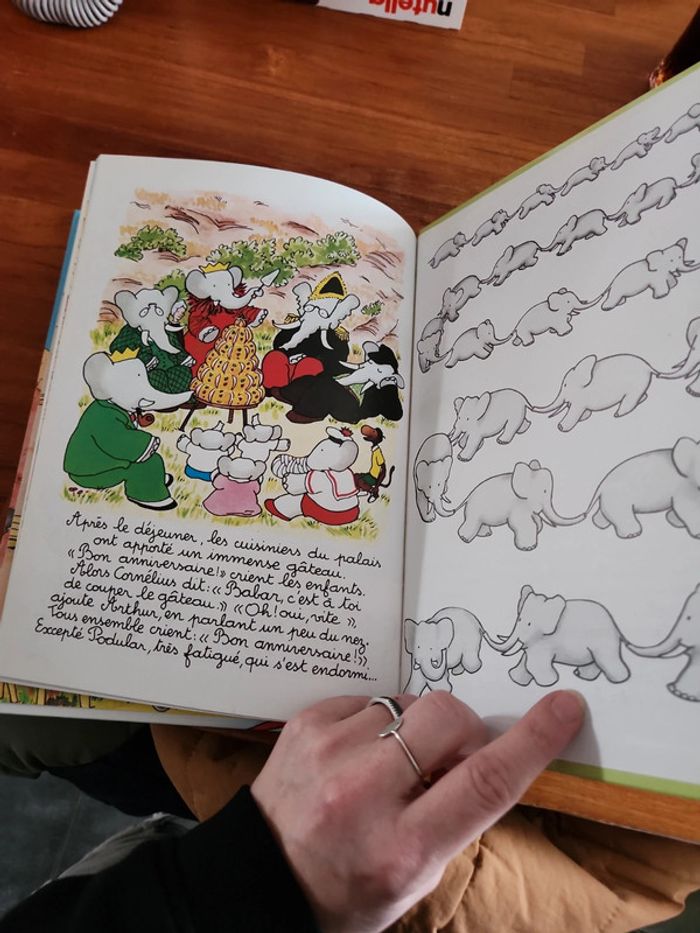 nutella
Après le déjeuner, les cuisiniers du palais
ont apporté un immense gâteau.
«Bon anniversaire!» crient les enfants.
Alors Cornélius dit: «Babar, c'est à toi
de couper le gâteau.» «Oh! oui, vite»,
ajoute Arthur, en parlant un peu du nez.
Tous ensemble crient: «Bon anniversaire!».
Excepté Podular, très fatigué, qui s'est endormi...